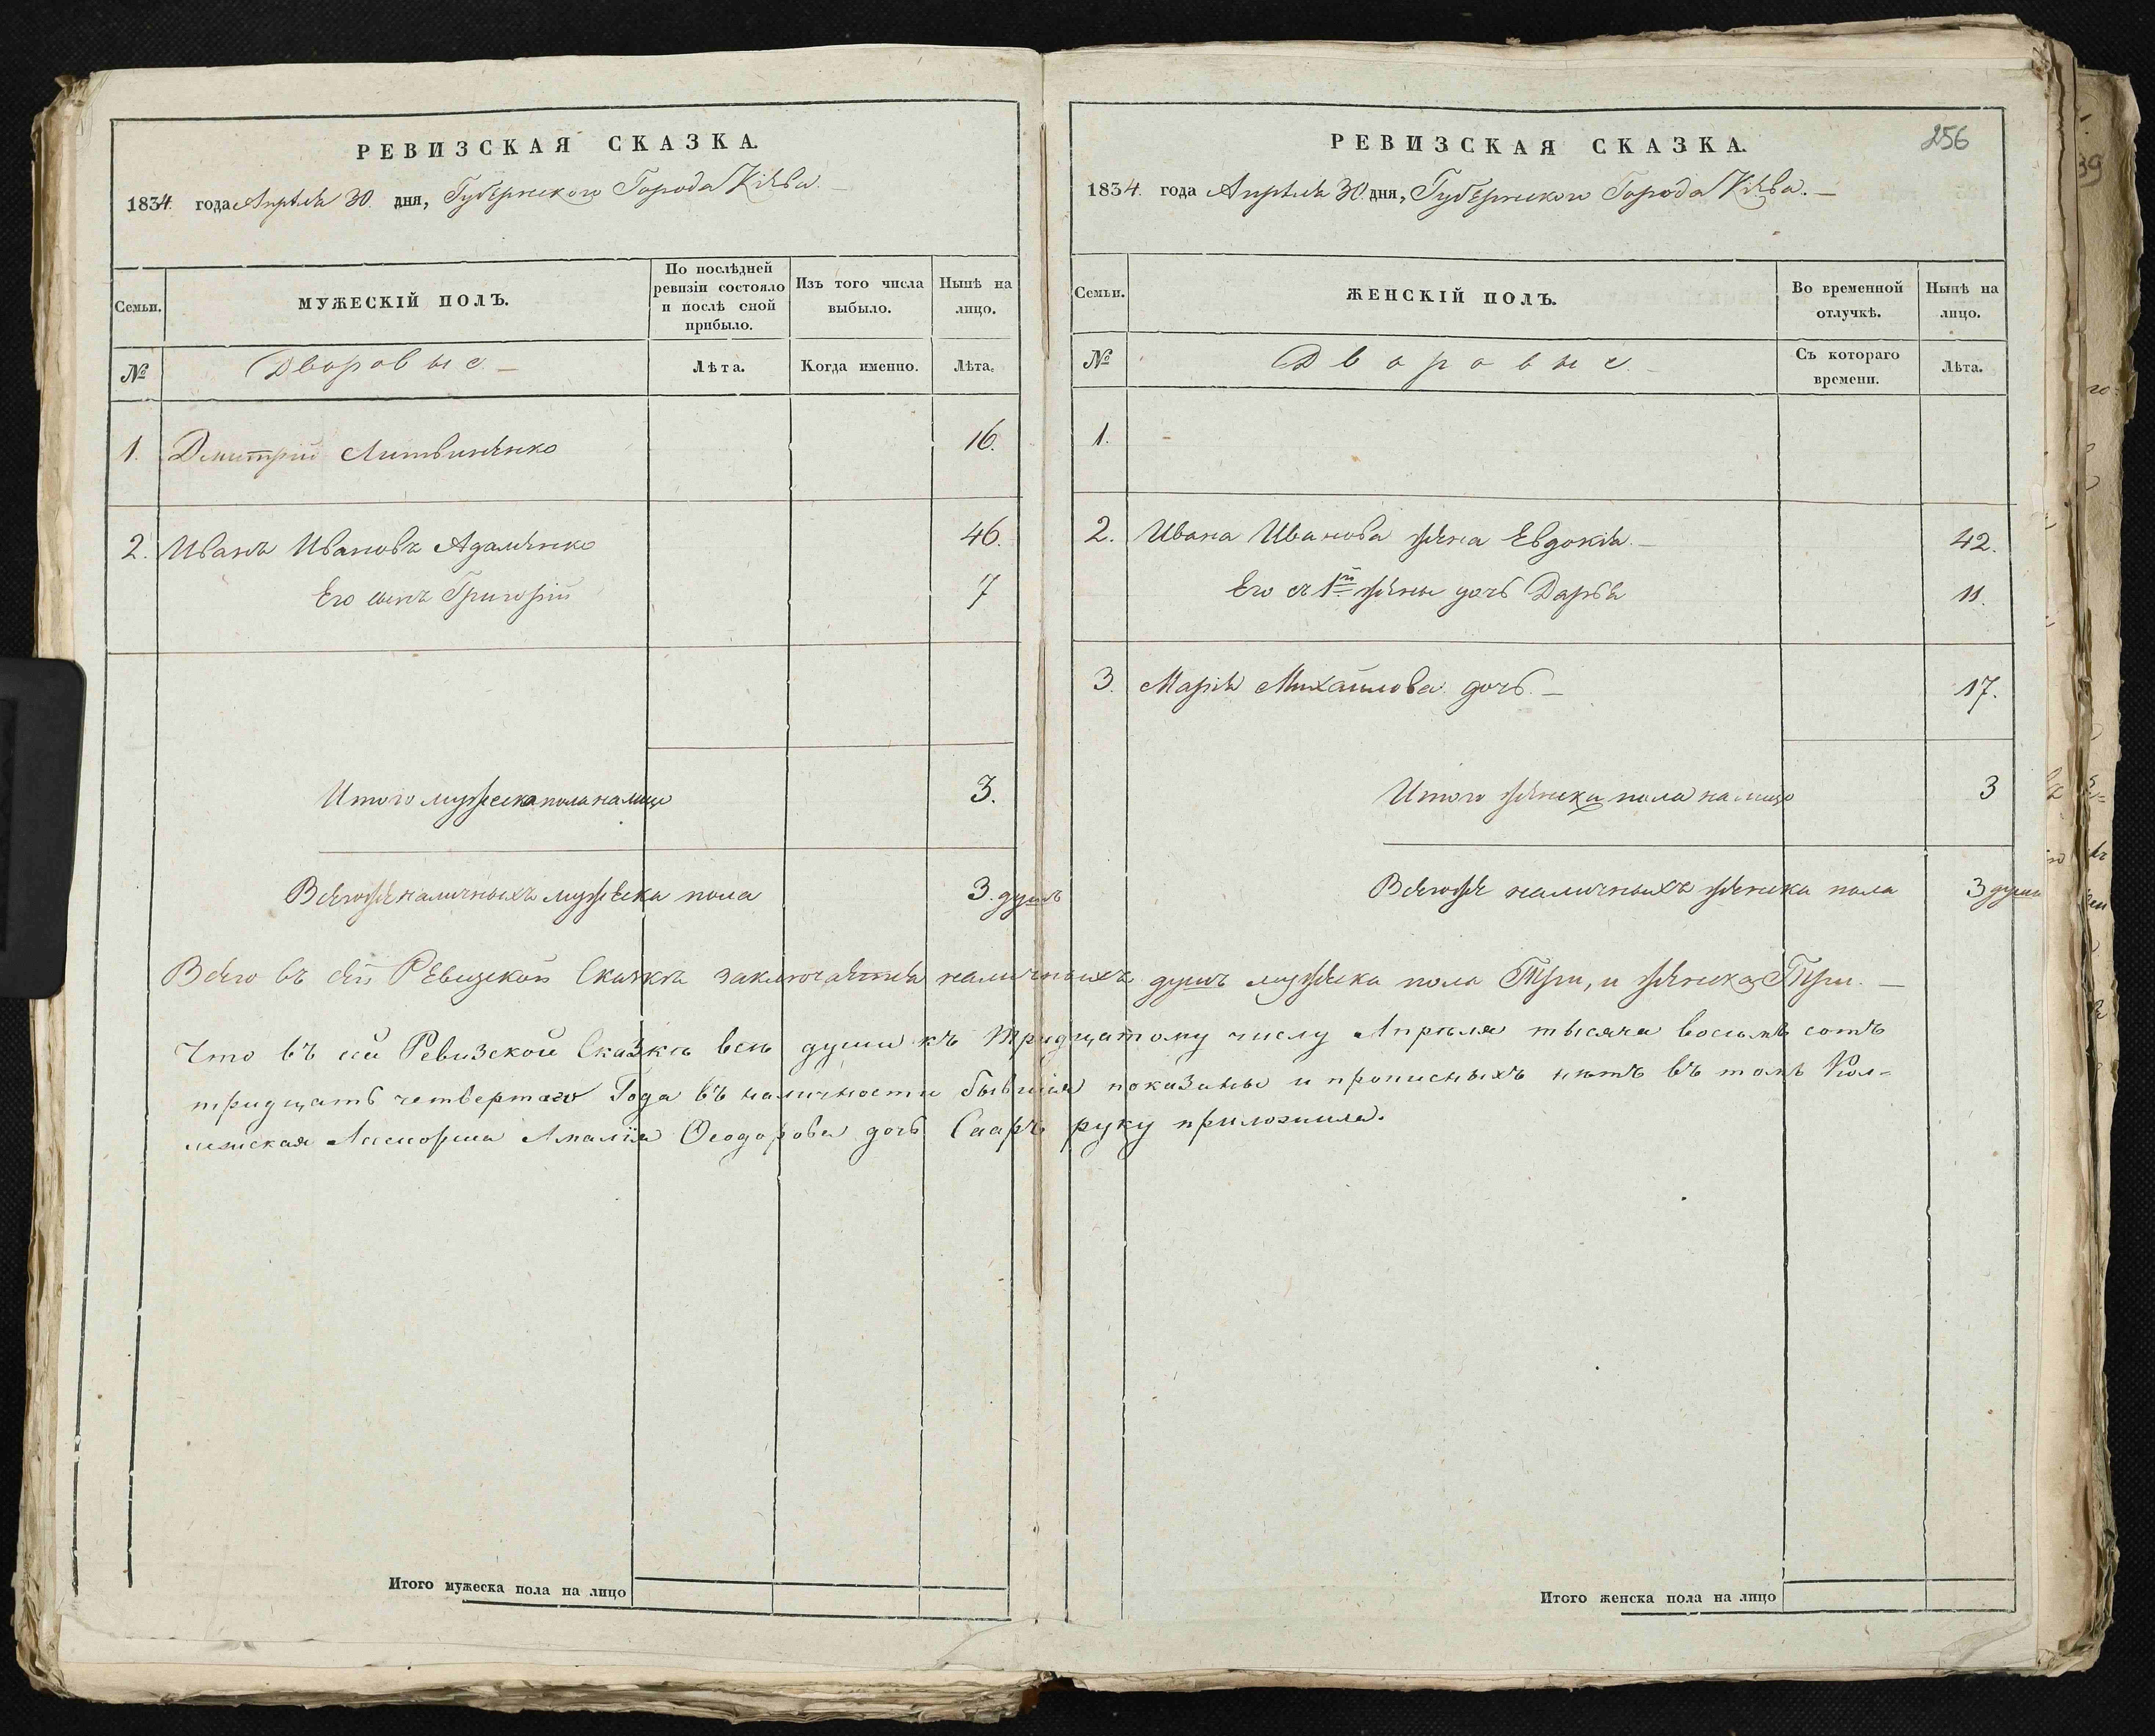 РЕВИЗСКАЯ СКАЗКА.
1834. года Апрѣля 30. дня, Губернскаго Города Кіева.
Семьи.
МУЖЕСКІЙ ПОЛЪ.
По послѣдней ревизіи состояло и послѣ сной прибыло.
Изъ того числа выбыло.
Нынѣ на лицо.
№
Дворовые.
Лѣта.
Когда именно.
Лѣта.
1. Дмитрій Литвиненко 16.
2. Иванъ Ивановъ Адаменко 46.
Его сынъ Григорій 7
Итого мужеска пола на лицо 3.
Всегоже наличныхъ мужеска пола 3. душъ
РЕВИЗСКАЯ СКАЗКА.
256
1834. года Апрѣля 30. дня, Губернскаго Города Кіева.
Семьи.
ЖЕНСКІЙ ПОЛЪ.
Во временной отлучкѣ.
Нынѣ на лицо.
№
Дворовые.
Съ котораго времени.
Лѣта.
1.
2. Ивана Иванова жена Евдокія 42.
Его съ 1й жены дочь Дарья 11.
3. Марія Михайлова дочь 17.
Итого женска пола на лицо 3
Всегоже наличныхъ женска пола 3 души
Всего въ сей Ревизской Сказкѣ заключается наличныхъ душъ мужеска пола Три, и женска Три.
Что въ сей Ревизской Сказкѣ всѣ души къ тридцатому числу Апрѣля тысяча восемь сотъ
тридцать четвертаго Года въ наличности бывшія показаны и прописныхъ нѣтъ въ томъ Кол-
лежская Ассесорша Амалія Ѳеодорова дочь Сааръ руку приложила.
Итого мужеска пола на лицо
Итого женска пола на лицо